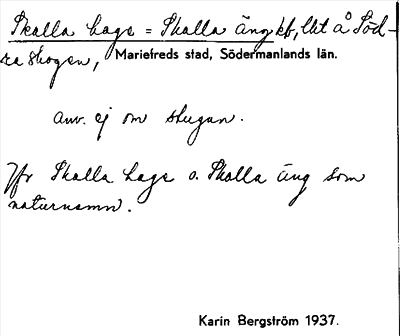 Skalla hage = Skalla äng kb, lht å Söd-
ra skogen, Mariefreds stad, Södermanlands län.
anv. ej om stugan.
Jfr Skalla hage o. Skalla äng som
naturnamn.
Karin Bergström 1937.